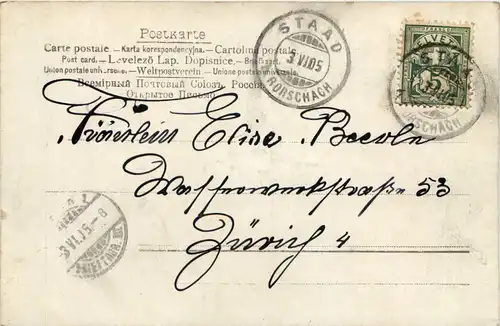 Postkarte
Carte postale — Karta korespondencyjna. — Cartolina postale
Post card. — Levelező Lap. Dopisnice. — Briefkaart.
Union postale universelle. — Weltpostverein. — Unione postale universale.
Всемірный Почтовый Союзъ. Россія.
Открытое Письмо
STAAD
3.VI.05
RORSCHACH
HELVETIA
STAAD
RORSCHACH
Fräulein Elise
Wasserwerkstraße 53
Zürich 4
3.VI.05-8